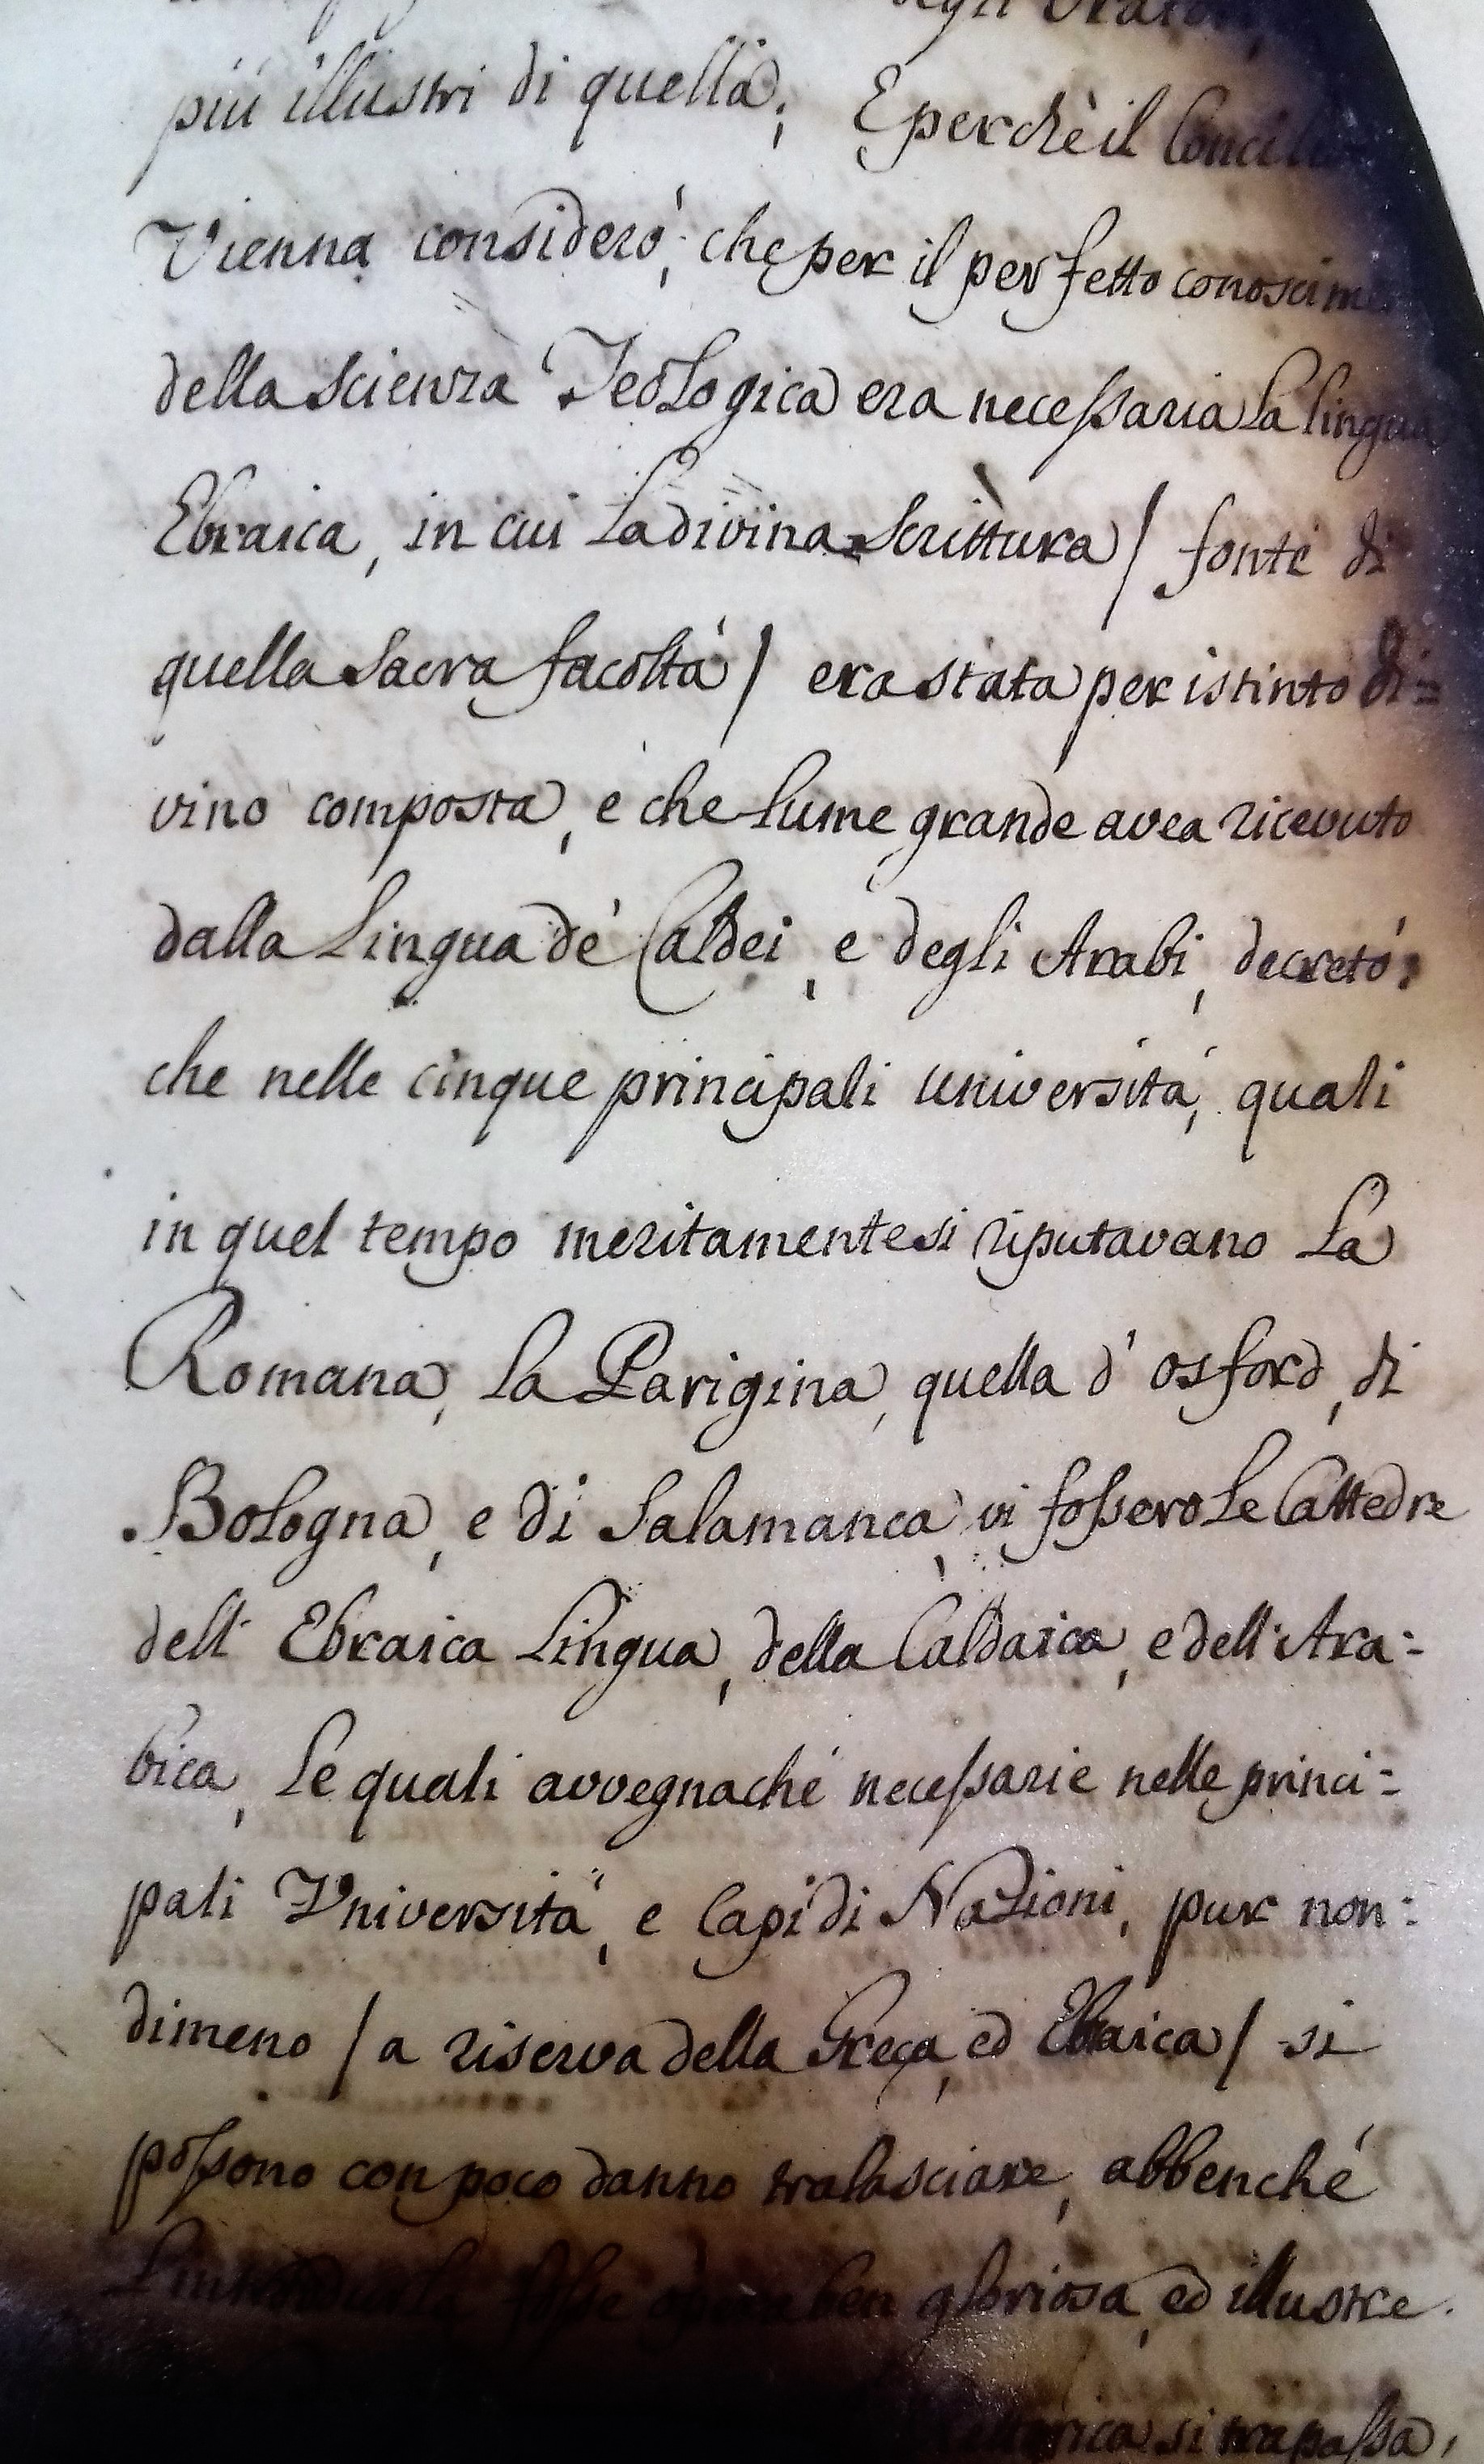 degli Oratori
più illustri di quella; E perchè il Concilio
Vienna considerò, che per il perfetto conoscime
della scienza Teologica era necessaria la lingua
Ebraica, in cui la divina Scrittura / fonte di
quella Sacra facoltà / era stata per istinto di=
vino composta, e che lume grande avea ricevuto
dalla Lingua de' Caldei, e degli Arabi, decretò;
che nelle cinque principali università, quali
in quel tempo meritamente si riputavano la
Romana, la Parigina, quella d' Osford, di
Bologna, e di Salamanca, vi fossero le Cattedre
dell' Ebraica Lingua, della Caldaica, e dell' Ara=
bica, le quali avvegnaché necessarie nelle princi=
pali Università, e Capi di Nazioni, pur non=
dimeno / a riserva della Greca, ed Ebraica / si
possono con poco danno tralasciare, abbenché
fosse ben gloriosa, ed illustre.
si trapassa,